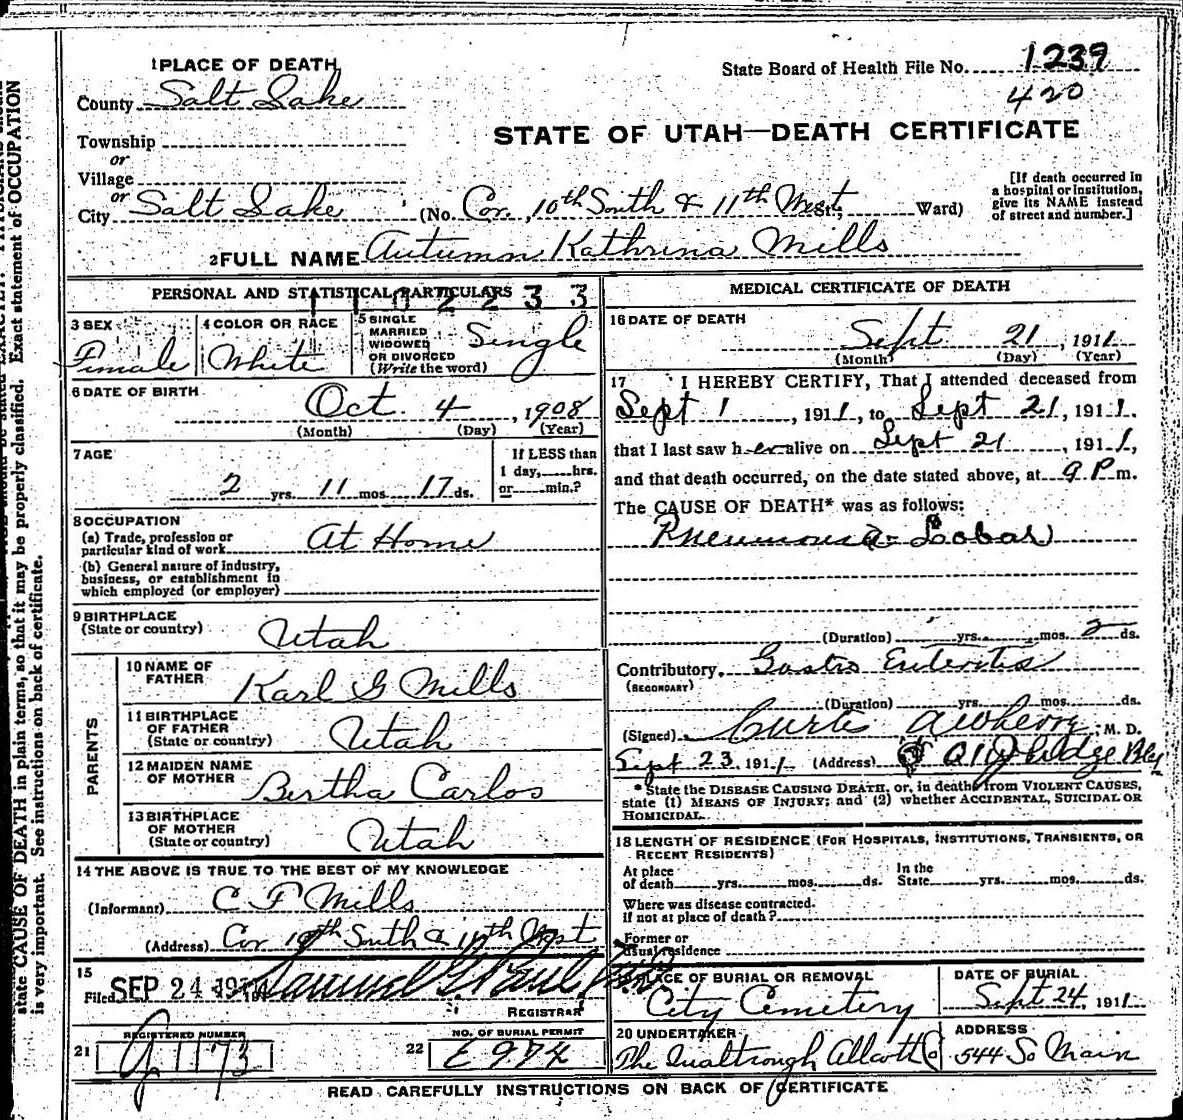 1 PLACE OF DEATH
State Board of Health File No. 1239
County Salt Lake
420
STATE OF UTAH—DEATH CERTIFICATE
Township
or
Village
or
City Salt Lake (No. Cor. 10th South & 11th West St; Ward)
[If death occurred in
a hospital or institution,
give its NAME instead
of street and number.]
2 FULL NAME Autumn Kathrina Mills
PERSONAL AND STATISTICAL PARTICULARS
3 SEX
Female
4 COLOR OR RACE
White
5 SINGLE
MARRIED
WIDOWED
OR DIVORCED
(Write the word)
Single
6 DATE OF BIRTH
Oct. 4, 1908
(Month) (Day) (Year)
7 AGE
2 yrs. 11 mos. 17 ds.
If LESS than
1 day, hrs.
or min.?
8 OCCUPATION
(a) Trade, profession or
particular kind of work At Home
(b) General nature of industry,
business, or establishment in
which employed (or employer)
9 BIRTHPLACE
(State or country) Utah
PARENTS
10 NAME OF
FATHER Karl G Mills
11 BIRTHPLACE
OF FATHER
(State or country) Utah
12 MAIDEN NAME
OF MOTHER Bertha Carlos
13 BIRTHPLACE
OF MOTHER
(State or country) Utah
14 THE ABOVE IS TRUE TO THE BEST OF MY KNOWLEDGE
(Informant) C F Mills
(Address) Cor 10th South & 11th West
15
Filed SEP 24 1911 Samuel G. Paul
REGISTRAR
REGISTERED NUMBER
21 J 1173
NO. OF BURIAL PERMIT
22 E 974
MEDICAL CERTIFICATE OF DEATH
16 DATE OF DEATH
Sept 21, 1911
(Month) (Day) (Year)
17 I HEREBY CERTIFY, That I attended deceased from
Sept 1, 1911, to Sept 21, 1911.
that I last saw her alive on Sept 21, 1911,
and that death occurred, on the date stated above, at 9 P m.
The CAUSE OF DEATH* was as follows:
Pneumonia - Lobar
(Duration) yrs. mos. 2 ds.
Contributory Gastro Enteritis
(SECONDARY)
(Duration) yrs. mos. ds.
(Signed) Curtis, M. D.
Sept 23, 1911 (Address) Judge Bldg
* State the DISEASE CAUSING DEATH, or, in deaths from VIOLENT CAUSES,
state (1) MEANS OF INJURY; and (2) whether ACCIDENTAL, SUICIDAL OR
HOMICIDAL.
18 LENGTH OF RESIDENCE (FOR HOSPITALS, INSTITUTIONS, TRANSIENTS, OR
RECENT RESIDENTS)
At place
of death yrs. mos. ds.
In the
State yrs. mos. ds.
Where was disease contracted.
if not at place of death?
Former or
usual residence
PLACE OF BURIAL OR REMOVAL
City Cemetery
DATE OF BURIAL
Sept 24, 1911
20 UNDERTAKER
The Qualtrough Allcott Co
ADDRESS
544 So Main
READ CAREFULLY INSTRUCTIONS ON BACK OF CERTIFICATE
state CAUSE OF DEATH in plain terms, so that it may be properly classified. Exact statement of OCCUPATION
is very important. See instructions on back of certificate.